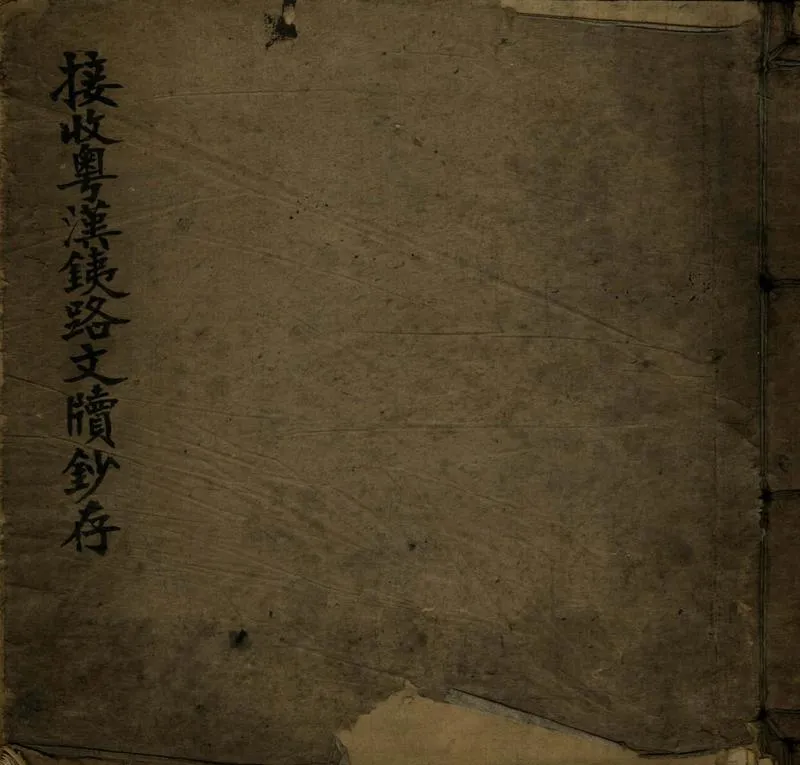 接收粵漢銕路文牘鈔存